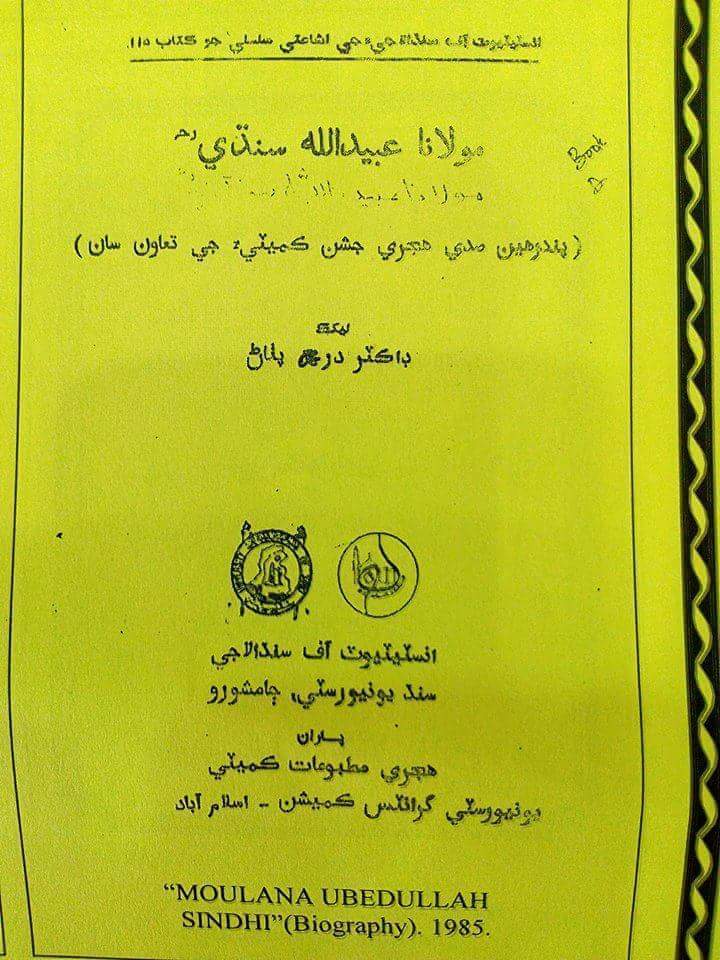 انسٽيٽيوٽ آف سنڌالاجيءَ جي اشاعتي سلسلي جو ڪتاب ١١٥
مولانا عبيدالله سنڌي رحه
Book
مولانا عبيد
(پندرهين صدي هجري جشن ڪميٽيءَ جي تعاون سان)
ليکڪ
ڊاڪٽر در محمد پٺاڻ
انسٽيٽيوٽ آف سنڌالاجي
سنڌ يونيورسٽي، ڄامشورو
پاران
هجري مطبوعات ڪميٽي
يونيورسٽي گرانٽس ڪميشن - اسلام آباد
“MOULANA UBEDULLAH
SINDHI”(Biography). 1985.